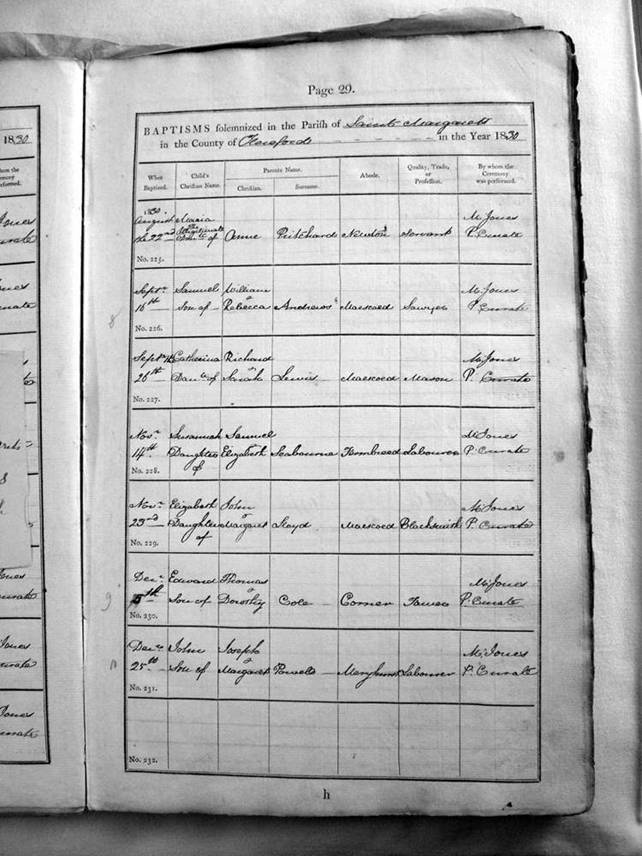 Page 29.
BAPTISMS solemnized in the Parish of Saint Margarett
in the County of Hereford in the Year 1830
When Baptized. Child's Christian Name. Parents Name. Christian. Surname. Abode. Quality, Trade, or Profession. By whom the Ceremony was performed.
1830
August Maria M. Jones
22nd of Anne Pritchard Newton Servant P. Curate
No. 225.
Septr. Samuel William M. Jones
16th Son of & Rebecca Andrews Maescoed Sawyer P. Curate
No. 226.
Septr. Catherine Richard M. Jones
26th of & Sarah Lewis Maescoed Mason P. Curate
No. 227.
Novr. Susannah Samuel M. Jones
14th Daughter of & Elizabeth Seabourne Labourer P. Curate
No. 228.
Novr. Elizabeth John M. Jones
23rd Daughter of & Margaret Lloyd Maescoed Blacksmith P. Curate
No. 229.
Decr. Edward Thomas M. Jones
5th Son of & Dorothy Cole Corner P. Curate
No. 230.
Decr. John Joseph M. Jones
25th Son of & Margaret Powell Labourer P. Curate
No. 231.
No. 232.
h